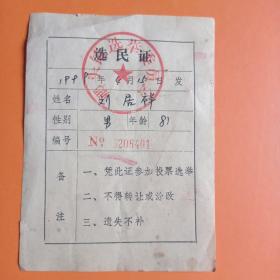 选民证
199 年 月 日发
姓名 刘居祥
性别 男 年龄 81
编号 No 208401
备注
一、凭此证参加投票选举
二、不得转让或涂改
三、遗失不补